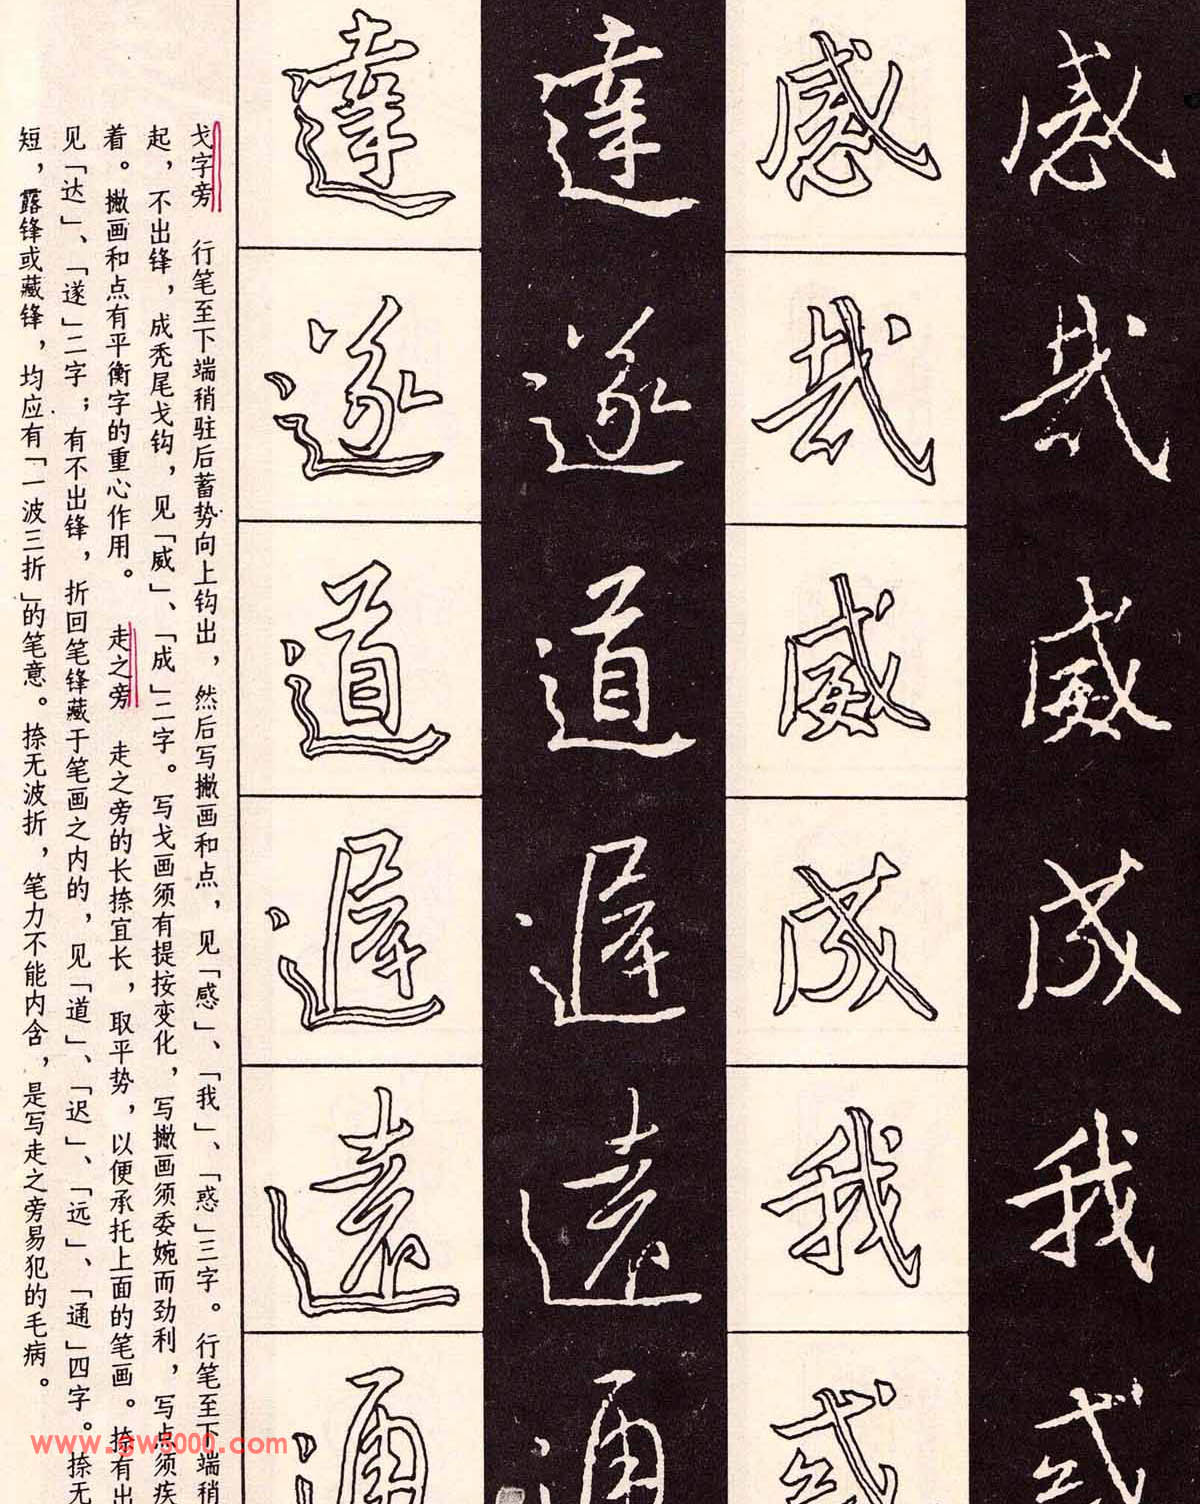 感
哉
威
成
我
感
哉
威
成
我
達
遂
道
遲
遠
通
達
遂
道
遲
遠
通
戈字旁　行笔至下端稍驻后蓄势向上钩出，然后写撇画和点，见「感」、「我」、「惑」三字。行笔至下端稍
起，不出锋，成秃尾戈钩，见「威」、「成」二字。写戈画须有提按变化，写撇画须委婉而劲利，写点须疾
着。撇画和点有平衡字的重心作用。　走之旁　走之旁的长捺宜长，取平势，以便承托上面的笔画。捺有出
见「达」、「遂」二字；有不出锋，折回笔锋藏于笔画之内的，见「道」、「迟」、「远」、「通」四字。捺无
短，露锋或藏锋，均应有「一波三折」的笔意。捺无波折，笔力不能内含，是写走之旁易犯的毛病。
www.gw5000.com